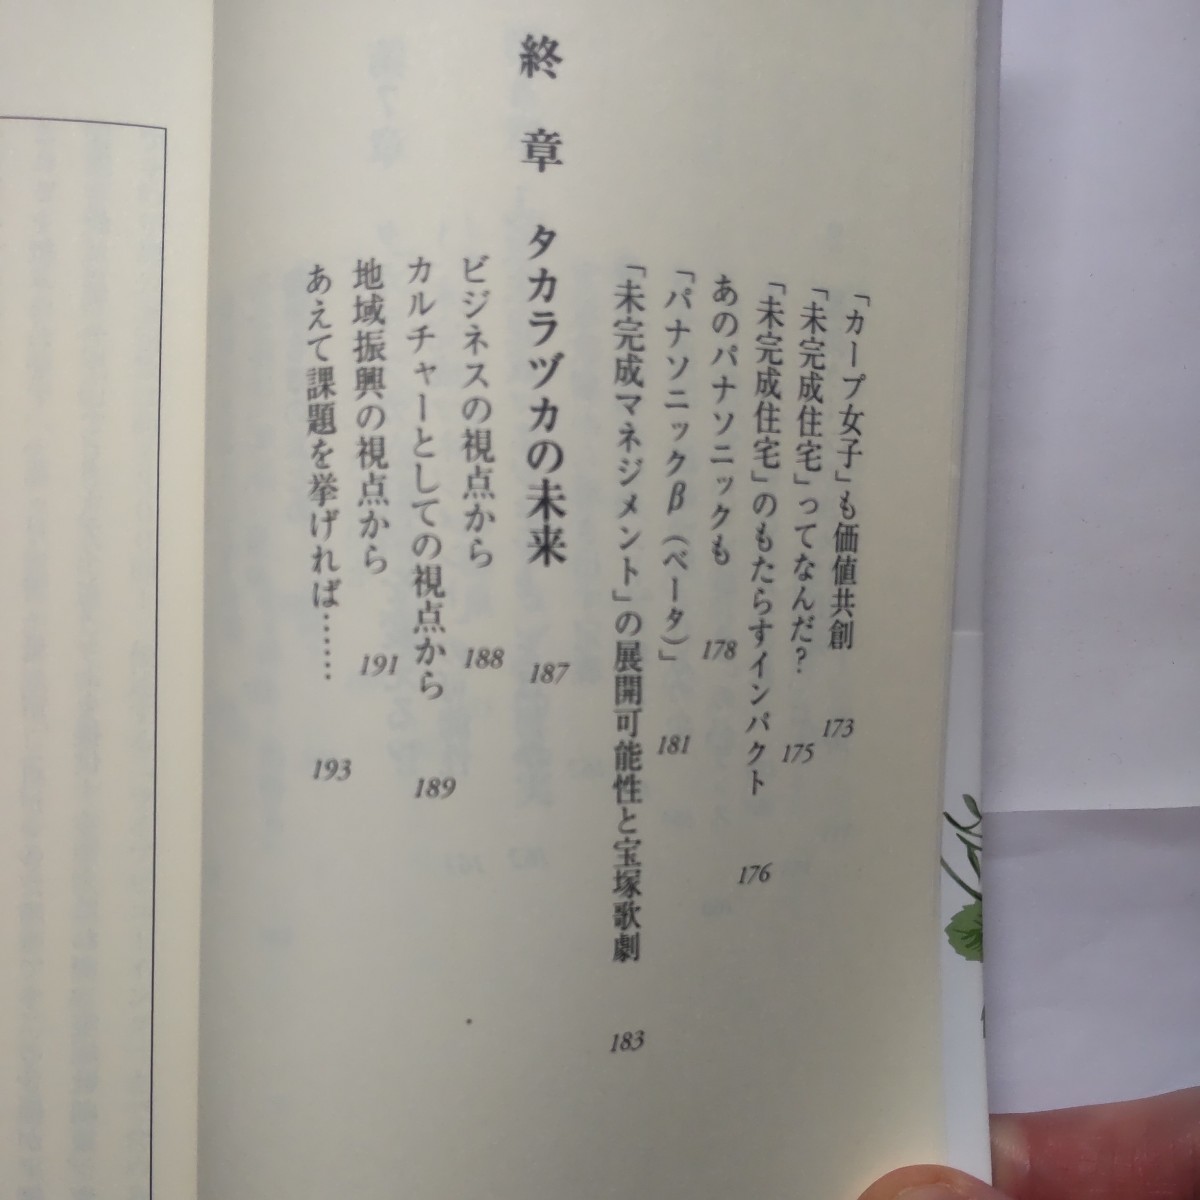 「カープ女子」も価値共創 173
「未完成住宅」ってなんだ？ 175
「未完成住宅」のもたらすインパクト 176
あのパナソニックも 178
「パナソニックβ（ベータ）」 181
「未完成マネジメント」の展開可能性と宝塚歌劇 183
終章 タカラヅカの未来 187
ビジネスの視点から 188
カルチャーとしての視点から 189
地域振興の視点から 191
あえて課題を挙げれば…… 193